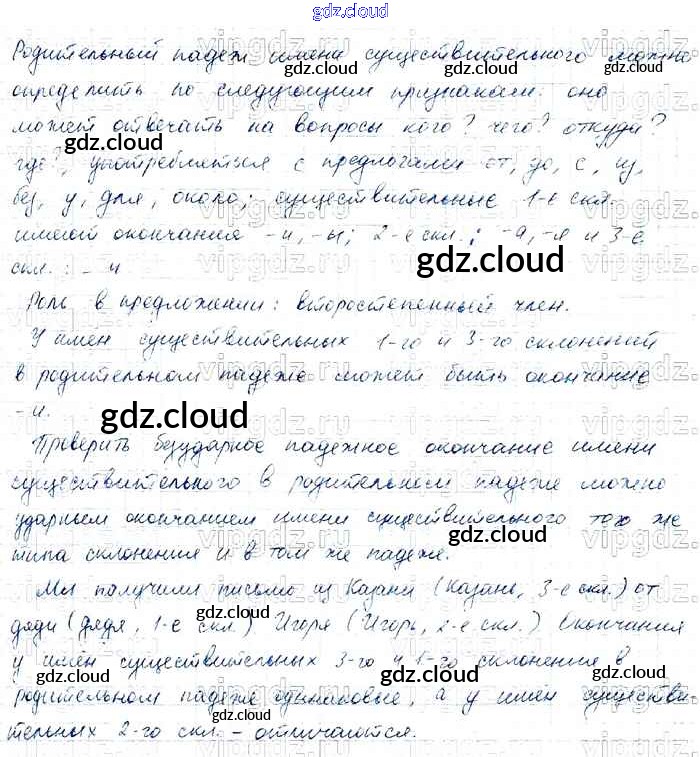 gdz.cloud
Родительный падеж имени существительного можно
определить по следующим признакам: оно
может отвечать на вопросы кого? чего? откуда?
где?, употребляться с предлогами от, до, с, из,
без, у, для, около; существительные 1-е скл.
имеют окончания -и, -ы; 2-е скл.: -а, -я и 3-е
скл.: -и
Роль в предложении: второстепенный член.
У имен существительных 1-го и 3-го склонений
в родительном падеже может быть окончание
-и.
Проверить безударное падежное окончание имени
существительного в родительном падеже можно
ударным окончанием имени существительного того же
типа склонения и в том же падеже.
Мы получили письмо из Казани (Казань, 3-е скл.) от
дяди (дядя, 1-е скл.) Игоря (Игорь, 2-е скл.) Окончания
у имён существительных 3-го и 1-го склонения в
родительном падеже одинаковые, а у имён существи-
тельных 2-го скл. - отличаются.